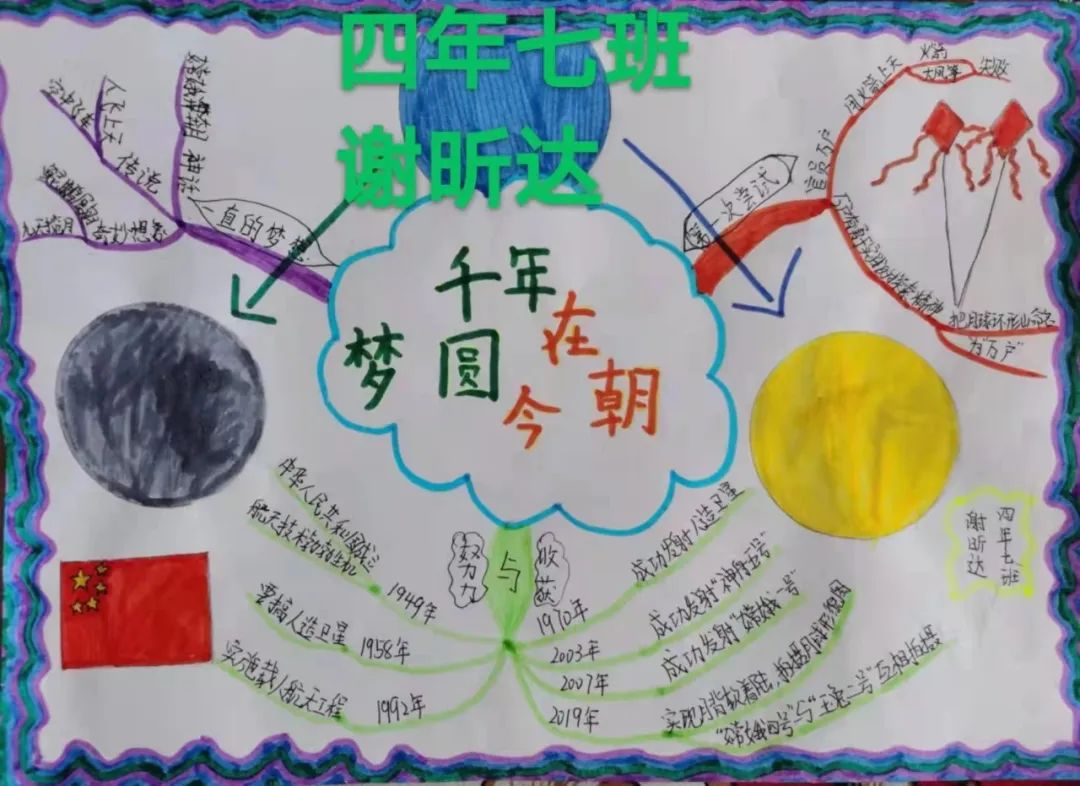 四年七班
谢昕达
千年
梦圆
在
今朝
嫦娥奔月 神话
人飞上天 传说
奇妙想象
九天揽月
第一次尝试
官员万户
用火箭上天
火箭
大风筝
失败
把月球环形山命名
为"万户"
努力
与
收获
中华人民共和国成立
1949年
要搞人造卫星
1958年
实施载人航天工程
1992年
1970年
成功发射人造卫星
2003年
成功发射"神舟五号"
2007年
成功发射"嫦娥一号"
2019年
实现月背软着陆,拍摄月球影像图
"嫦娥四号"与"玉兔二号"互相拍摄
四年七班
谢昕达